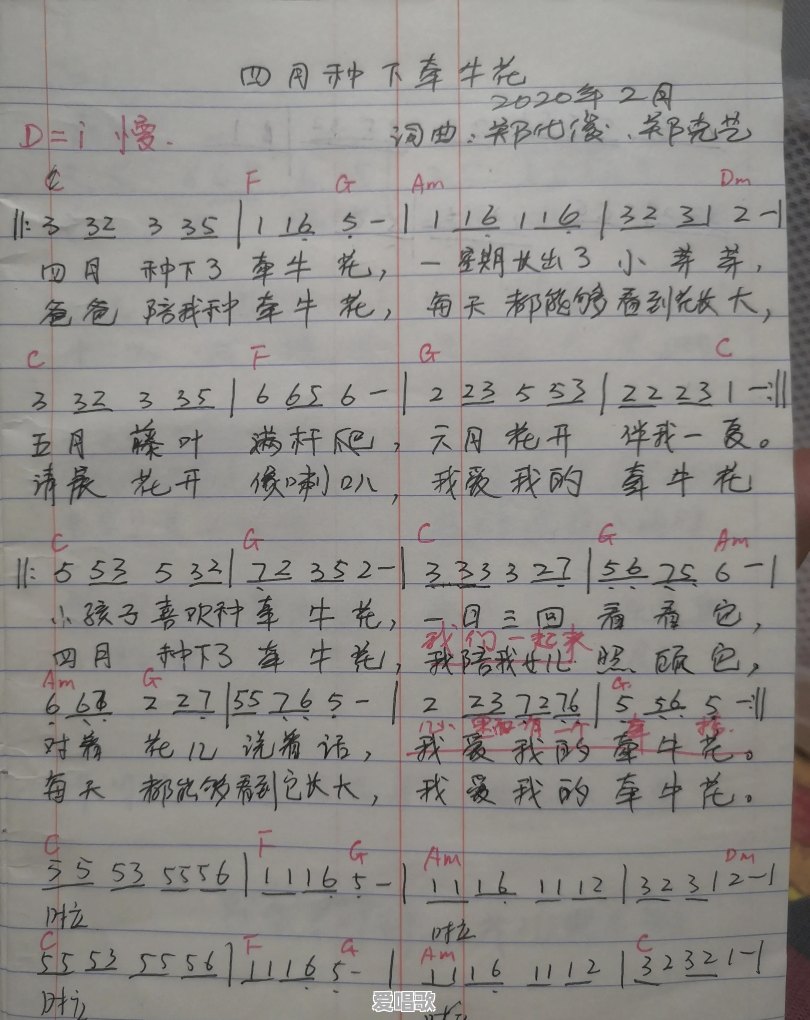 四月种下牵牛花
2020年2月
D=i 慢.
词曲:郑代俊、郑克芝
C F G Am Dm
‖: 3 32 3 35 | 1 16 5 - | 1 16 116 | 32 31 2 -|
四月 种下了 牵牛花, 一星期长出了 小芽芽,
爸爸 陪我种 牵牛花, 每天 都能够看到花长大,
C F G C
3 32 3 35 | 6 65 6 - | 2 23 5 53 | 22 23 1 -:‖
五月 藤叶 满杆爬, 六月花开 伴我一夏。
清晨 花开 像喇叭, 我爱我的 牵牛花
C G C G Am
‖: 5 53 5 32 | 72 352 - | 3 33 3 27 | 56 75 6 -|
小孩子喜欢种牵牛花, 一日三回 看看它,
我们一起来
四月 种下了 牵牛花, 我陪我女儿 照顾它,
Am G G
6 67 2 27 | 55 76 5 - | 2 23 72 76 | 5 56 5 -:‖
对着 花儿 说着话, 我爱我的 牵牛花。
每天 都能够看到它长大, 我爱我的牵牛花。
C F G Am Dm
55 53 5556 | 1116 5 - | 11 16 1112 | 32 31 2 -|
啦 啦
C F G Am C
55 53 55 56 | 1116 5 - | 11 16 11 12 | 32 32 1 -|
啦 啦
爱唱歌